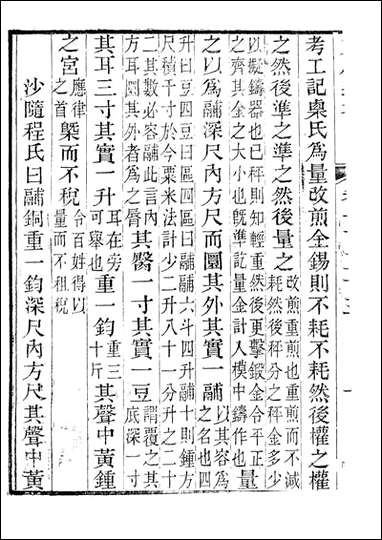 考工記㮚氏為量改煎金錫則不耗不耗然後權之權
之然後準之準之然後量之改煎重煎也重煎而不減耗然後秤分之秤金多少
以擬鑄器也已秤則知輕重然後更擊鍛金令平正之齊其金之大小也旣準訖量金計入模中鑄作也量
之以為鬴深尺內方尺而圜其外其實一鬴以其容為之名也四
升曰豆四豆曰區四區曰鬴鬴六斗四升鬴十則鍾方尺積千寸於今粟米法計少二升八十一分升之二十
二其數必容鬴此言內方耳圜其外者為之脣其臀一寸其實一豆謂覆之其底深一寸
其耳三寸其實一升耳在旁可舉也重一鈞重三十斤其聲中黄鍾
之宮應律之首槩而不稅令百姓得以量而不租稅
沙隨程氏曰鬴銅重一鈞深尺內方尺其聲中黄